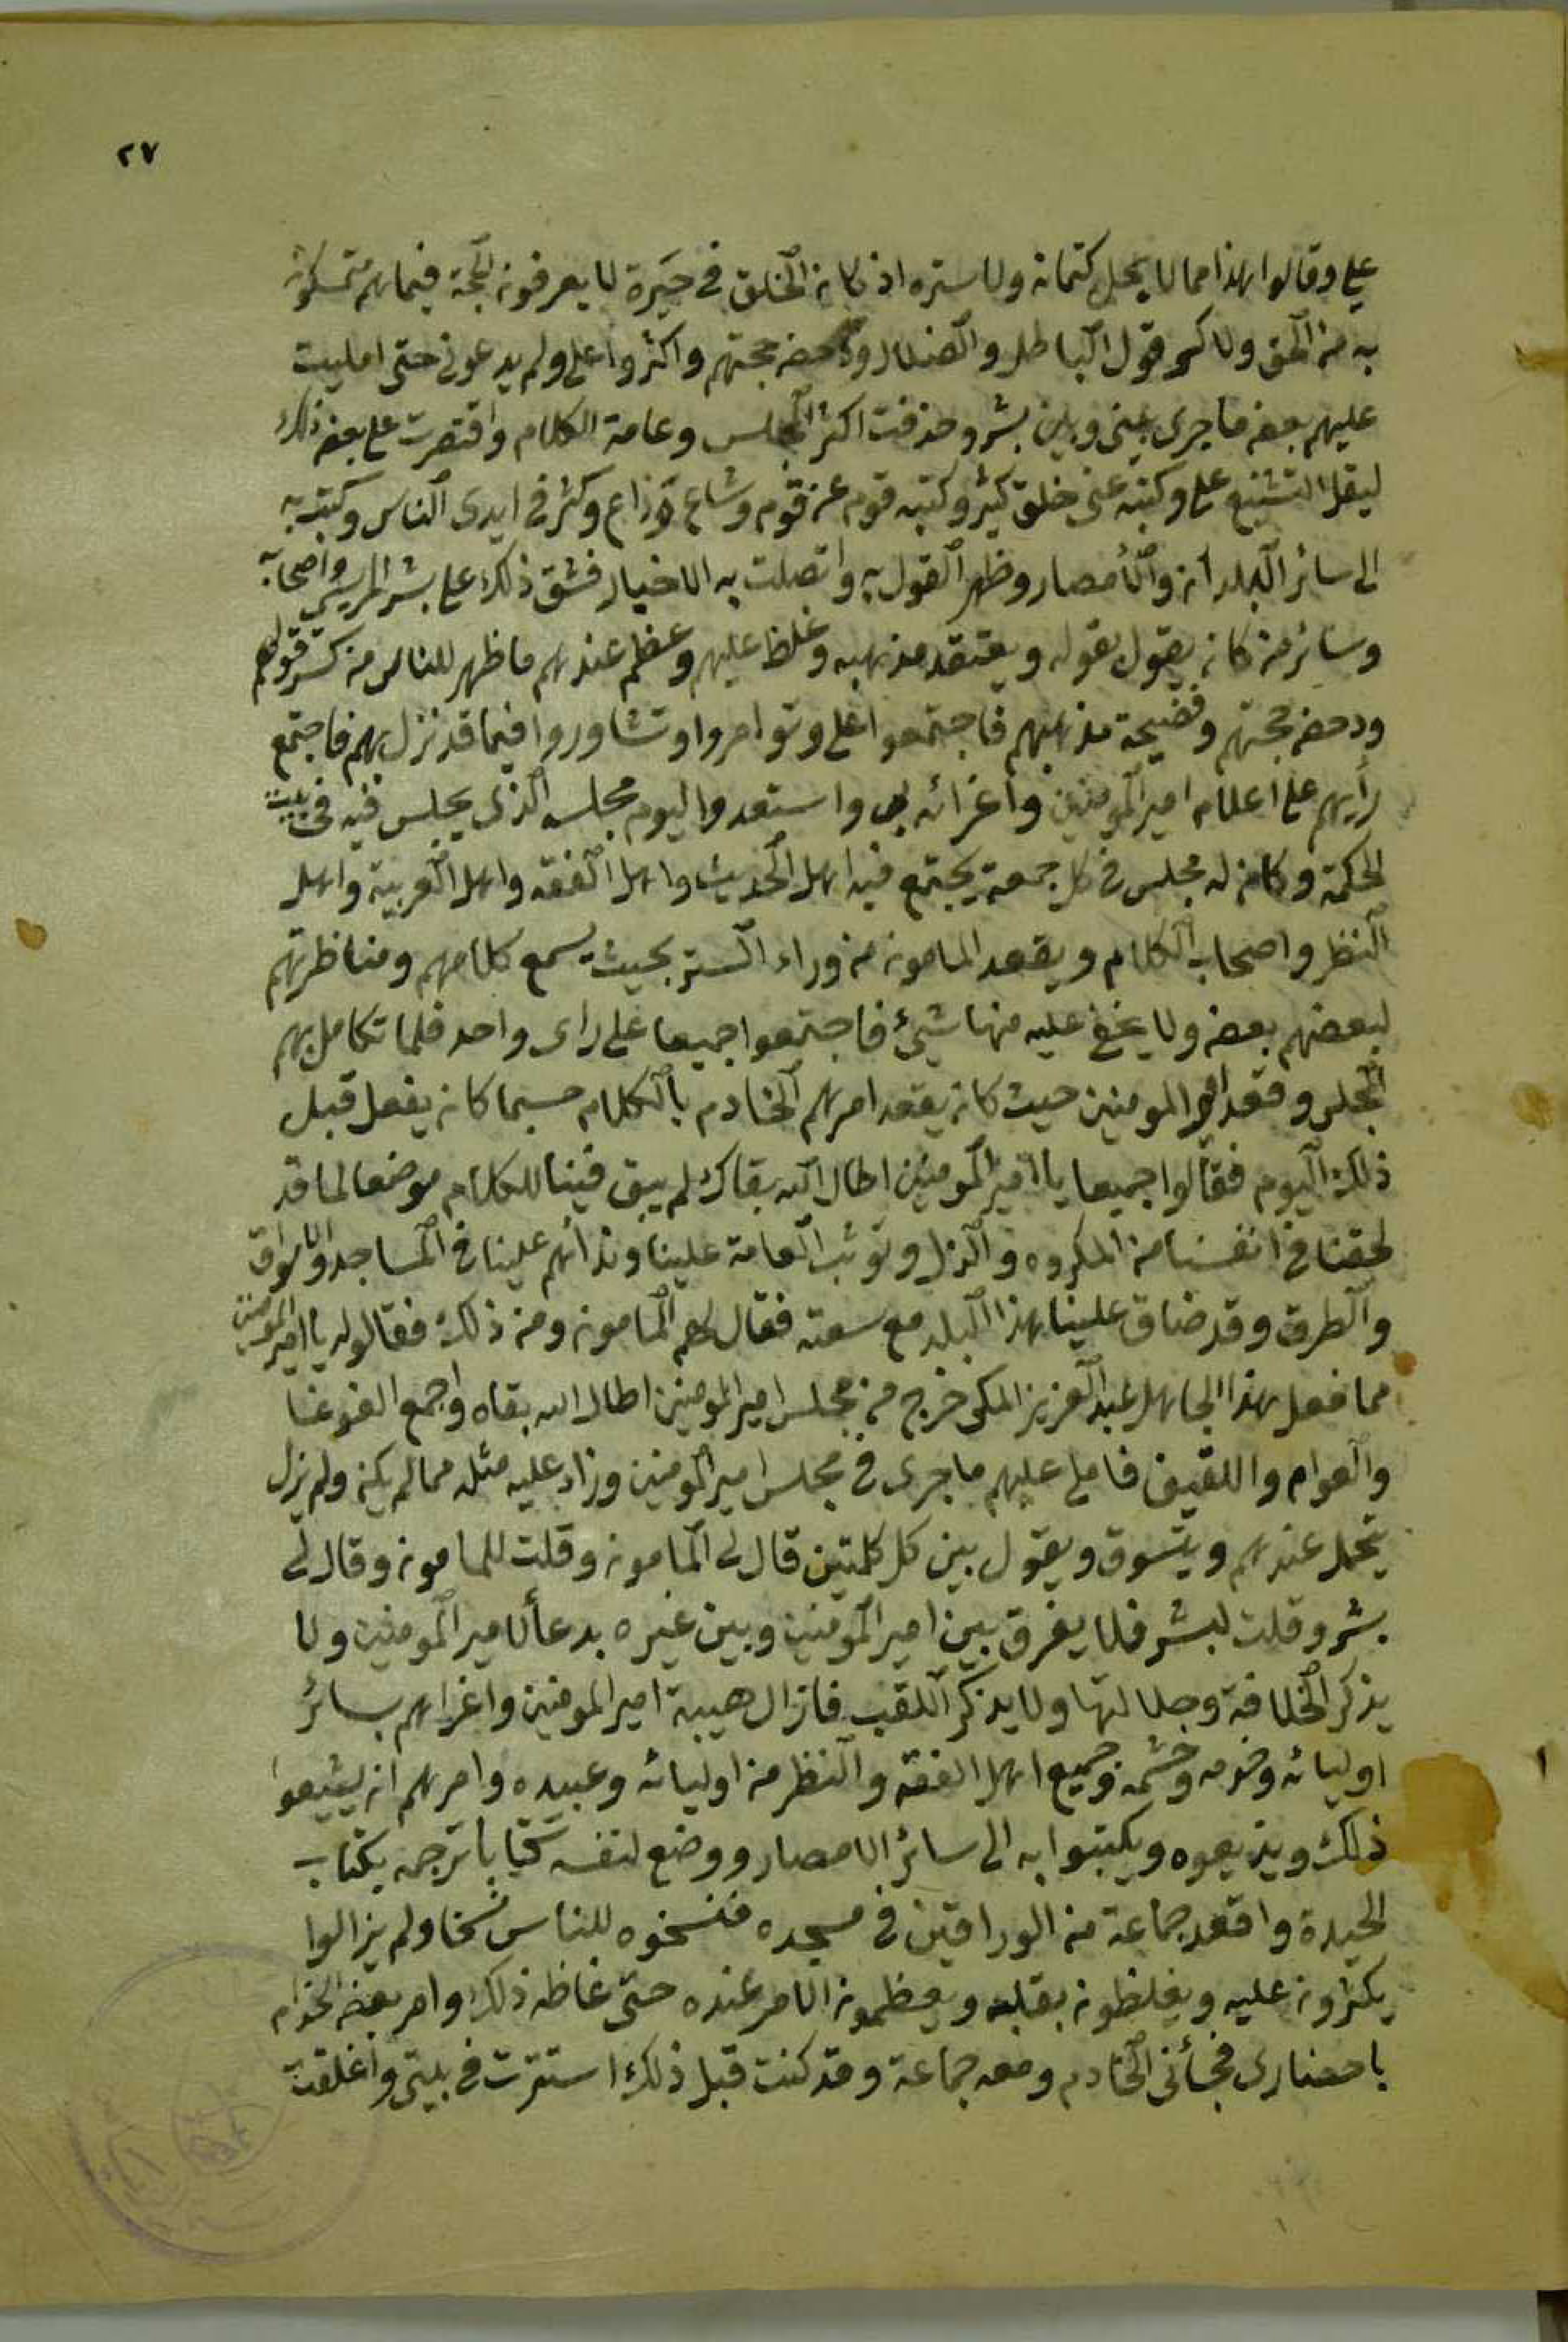 ٢٧
علي وقالوا هذا مما لا يحل كتمانه ولا ستره اذ كان الخلق في حيرة لا يعرفون الحجة فيما هم متمسكون
به من الحق ولا كسر قول الباطل والضلال ودحض حجتهم واكثروا علي ولم يدعوني حتى امليت
عليهم بعض ما جرى بيني وبين بشر وحذفت اكثر المجلس وعامة الكلام واقتصرت على بعض ذلك
ليقل التشنيع علي وكتبه عني خلق كثير وكتبه قوم عن قوم وشاع وذاع وكثر في ايدى الناس وكتب به
الى سائر البلدان والأمصار وظهر القول به واتصلت به الاخبار فشق ذلك على بشر المريسي واصحابه
وسائر من كان يقول بقوله ويعتقد مذهبه وغلظ عليهم وعظم عندهم ما ظهر للناس من كسر قولهم
ودحض حجتهم وفضيحة مذهبهم فاجتمعوا على وتوامروا وتشاوروا فيما قد نزل بهم فاجتمع
رأيهم على اعلام امير المومنين واغرائه بى واستعدوا اليوم مجلسه الذى يجلس فيه في بيت
الحكمة وكان له مجلس في كل جمعة يجتمع فيه اهل الحديث واهل الفقه واهل العربية واهل
النظر واصحاب الكلام ويقعد المامون من وراء الستر بحيث يسمع كلامهم ومناظرتهم
لبعضهم بعض ولا يخفى عليه منها شيئ فاجتمعوا جميعا على راى واحد فلما تكامل بهم
المجلس وقعد امير المومنين حيث كان يقعد امرهم الخادم بالكلام حسبما كان يفعل قبل
ذلك اليوم فقالوا جميعا يا امير المومنين اطال الله بقاك لم يبق فينا للكلام موضعا لما قد
لحقنا في انفسنا من المكروه والذل وتوثب العامة علينا وندائهم علينا في المساجد والاسواق
والطرق وقد ضاق علينا هذا البلد مع سعته فقال لهم المامون ومن ذلك فقالوا له يا امير المومنين
مما فعل هذا الجاهل عبد العزيز المكى خرج من مجلس امير المومنين اطال الله بقاه واجمع الغوغا
والعوام واللفيف فاملى عليهم ما جرى في مجلس امير المومنين وزاد عليه مثله مما لم يكن ولم يزل
يتحمل عندهم ويتسوق ويقول بين كل كلمتين قال لى المامون وقلت للمامون وقال لى
بشر وقلت لبشر فلا يفرق بين امير المومنين وبين غيره بدعأ لامير المومنين ولا
يذكر الخلافة وجلالتها ولا يذكر اللقب فازال هيبة امير المومنين واغراهم بسائر
اوليائه وخدمه وحشمه وجميع اهل الفقه والنظر من اوليائه وعبيده وامرهم ان يشيعوا
ذلك ويذيعوه ويكتبوا به الى سائر الامصار ووضع لنفسه كتابا ترجمه بكتاب
الحيدة واقعد جماعة من الوراقين في مسجده فنسخوه للناس نسخا ولم يزالوا
يكثرون عليه ويغلظون بقلبه ويعظمون الامر عنده حتى غاظه ذلك وامر بعض الخدام
باحضارى فجأنى الخادم ومعه جماعة وقد كنت قبل ذلك استترت في بيتى واغلقت